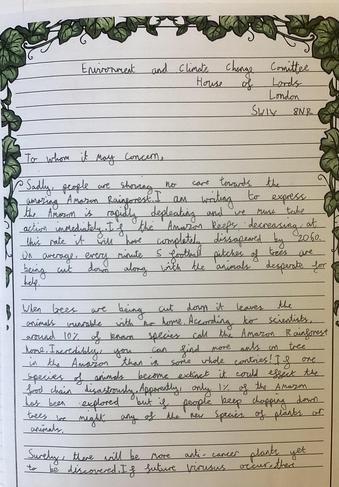 Environment and Climate Change Comittee
House of Lords
London
SW1V 8NR
To whom it may concern,
Sadly, people are showing no care towards the
amazing Amazon Rainforest. I am writing to express
the Amazon is rapidly depleating and we must take
action immediately. If the Amazon keeps decreasing at
this rate it will have completely dissapeared by 2060.
On average, every minute 5 football pitches of trees are
being cut down along with the animals desperate for
help.
When trees are being cut down it leaves the
animals with no home. According to scientists,
around 10% of known species call the Amazon Rainforest
home. Incredibly, you can find more ants on tree
in the Amazon than in some whole contries! If one
species of animals become extinct it could effect the
food chain disastrously. Apparently, only 1% of the Amazon
has been explored but if people keep chopping down
trees we might any of the new species of plants or
animals.
Surely, there will be more anti-cancer plants yet
to be discovered. If future occur, there